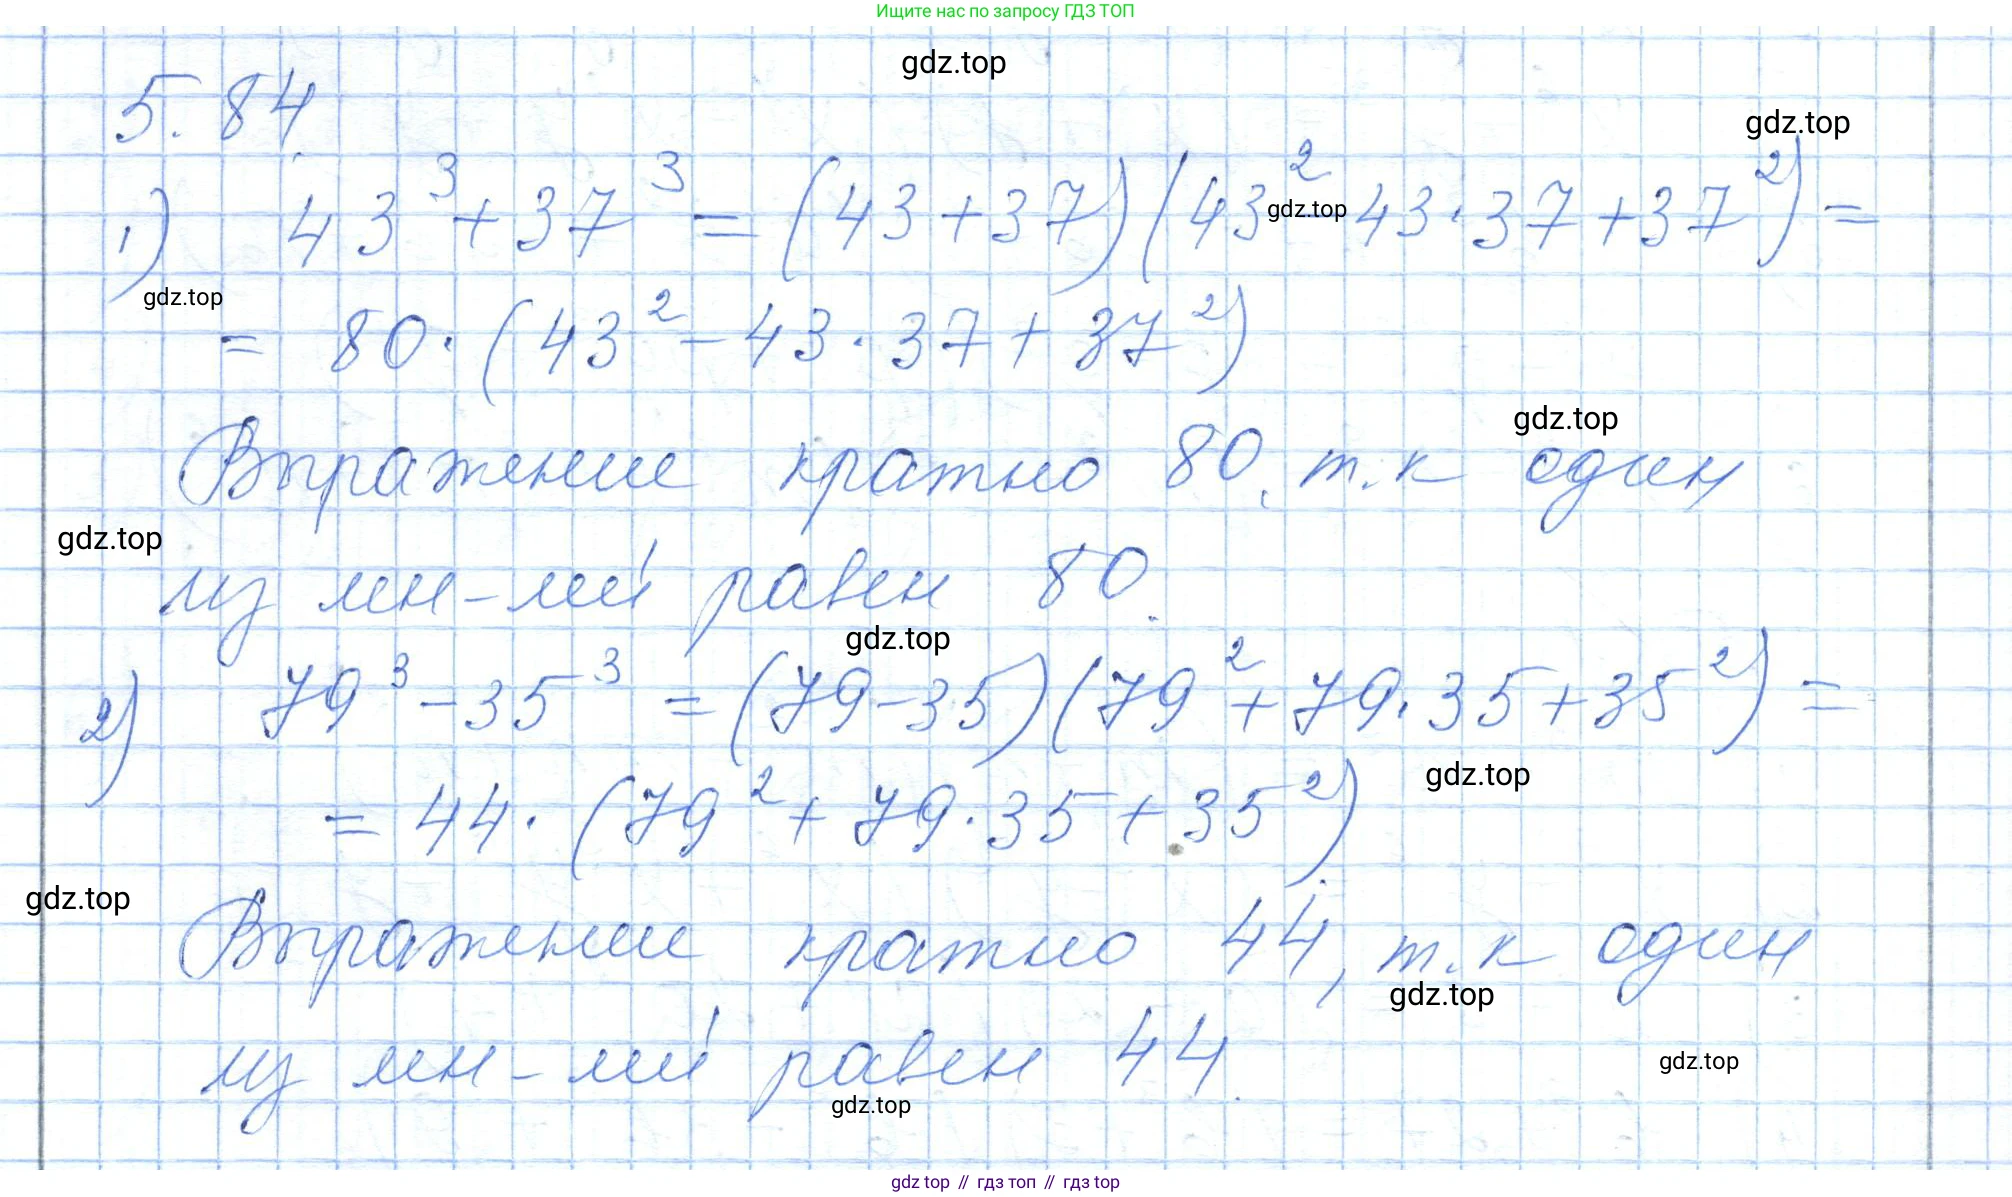 Ищите нас по запросу ГДЗ ТОП
gdz.top
5.84
gdz.top
1) 43³ + 37³ = (43 + 37)(43² gdz.top 43 · 37 + 37²) =
gdz.top
= 80 · (43² - 43 · 37 + 37²)
gdz.top
Выражение кратно 80, т.к один
gdz.top
из мн-лей равен 80.
gdz.top
2) 79³ - 35³ = (79 - 35)(79² + 79 · 35 + 35²) =
gdz.top
= 44 · (79² + 79 · 35 + 35²)
gdz.top
Выражение кратно 44, т.к один
gdz.top
из мн-лей равен 44.
gdz.top
gdz.top
gdz top // гдз топ // гдз top